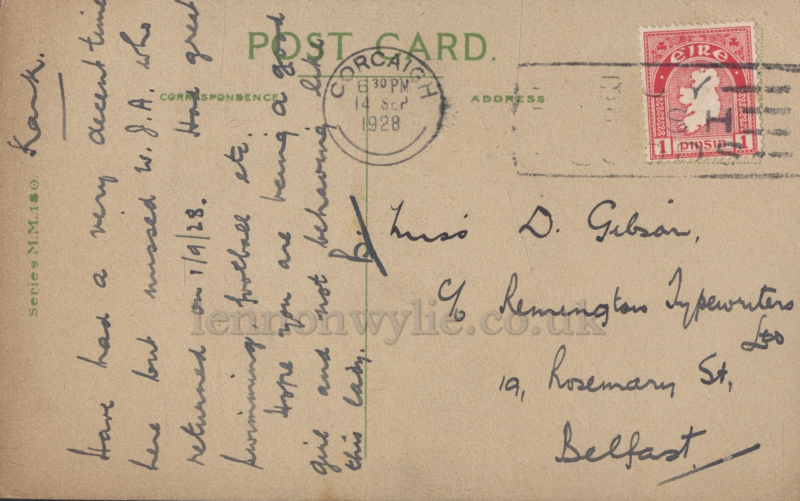 POST CARD.
CORRESPONDENCE
ADDRESS
CORCAIGH
6 30 PM
14 SEP
1928
éire
1 PINGIN 1
Series M.M.180
Kank.
Have had a very decent time
here but missed W.J.A. who
returned on 1/9/28. Had great
swimming, football etc.
Hope you are being a good
girl and not behaving like
this lady.
Miss D. Gibson,
c/o Remington Typewriters
Ltd
19, Rosemary St,
Belfast.
lennonwylie.co.uk